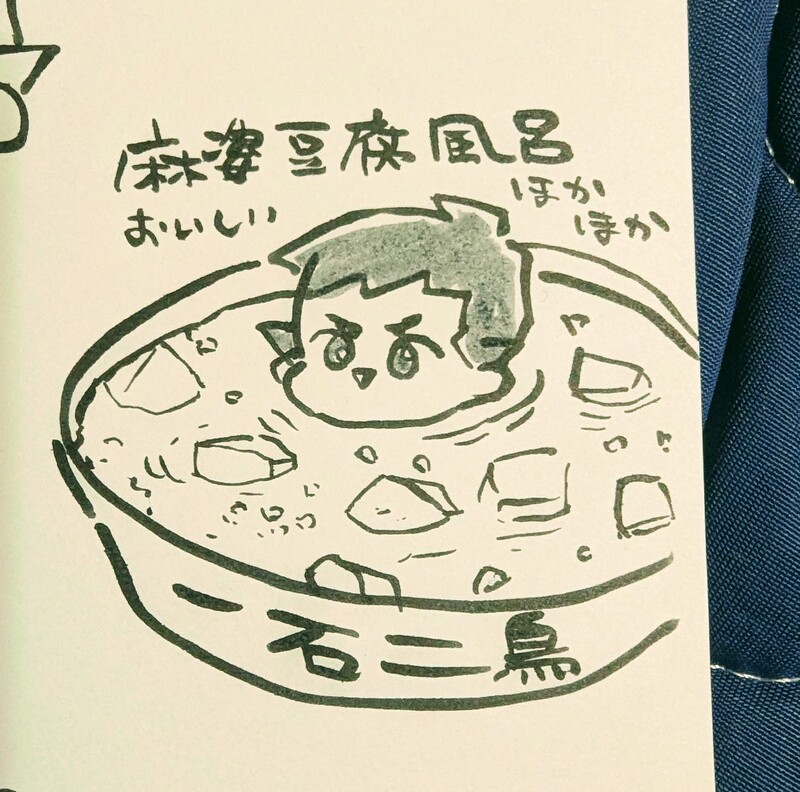 麻婆豆腐風呂
おいしい
ほか
ほか
一石二鳥